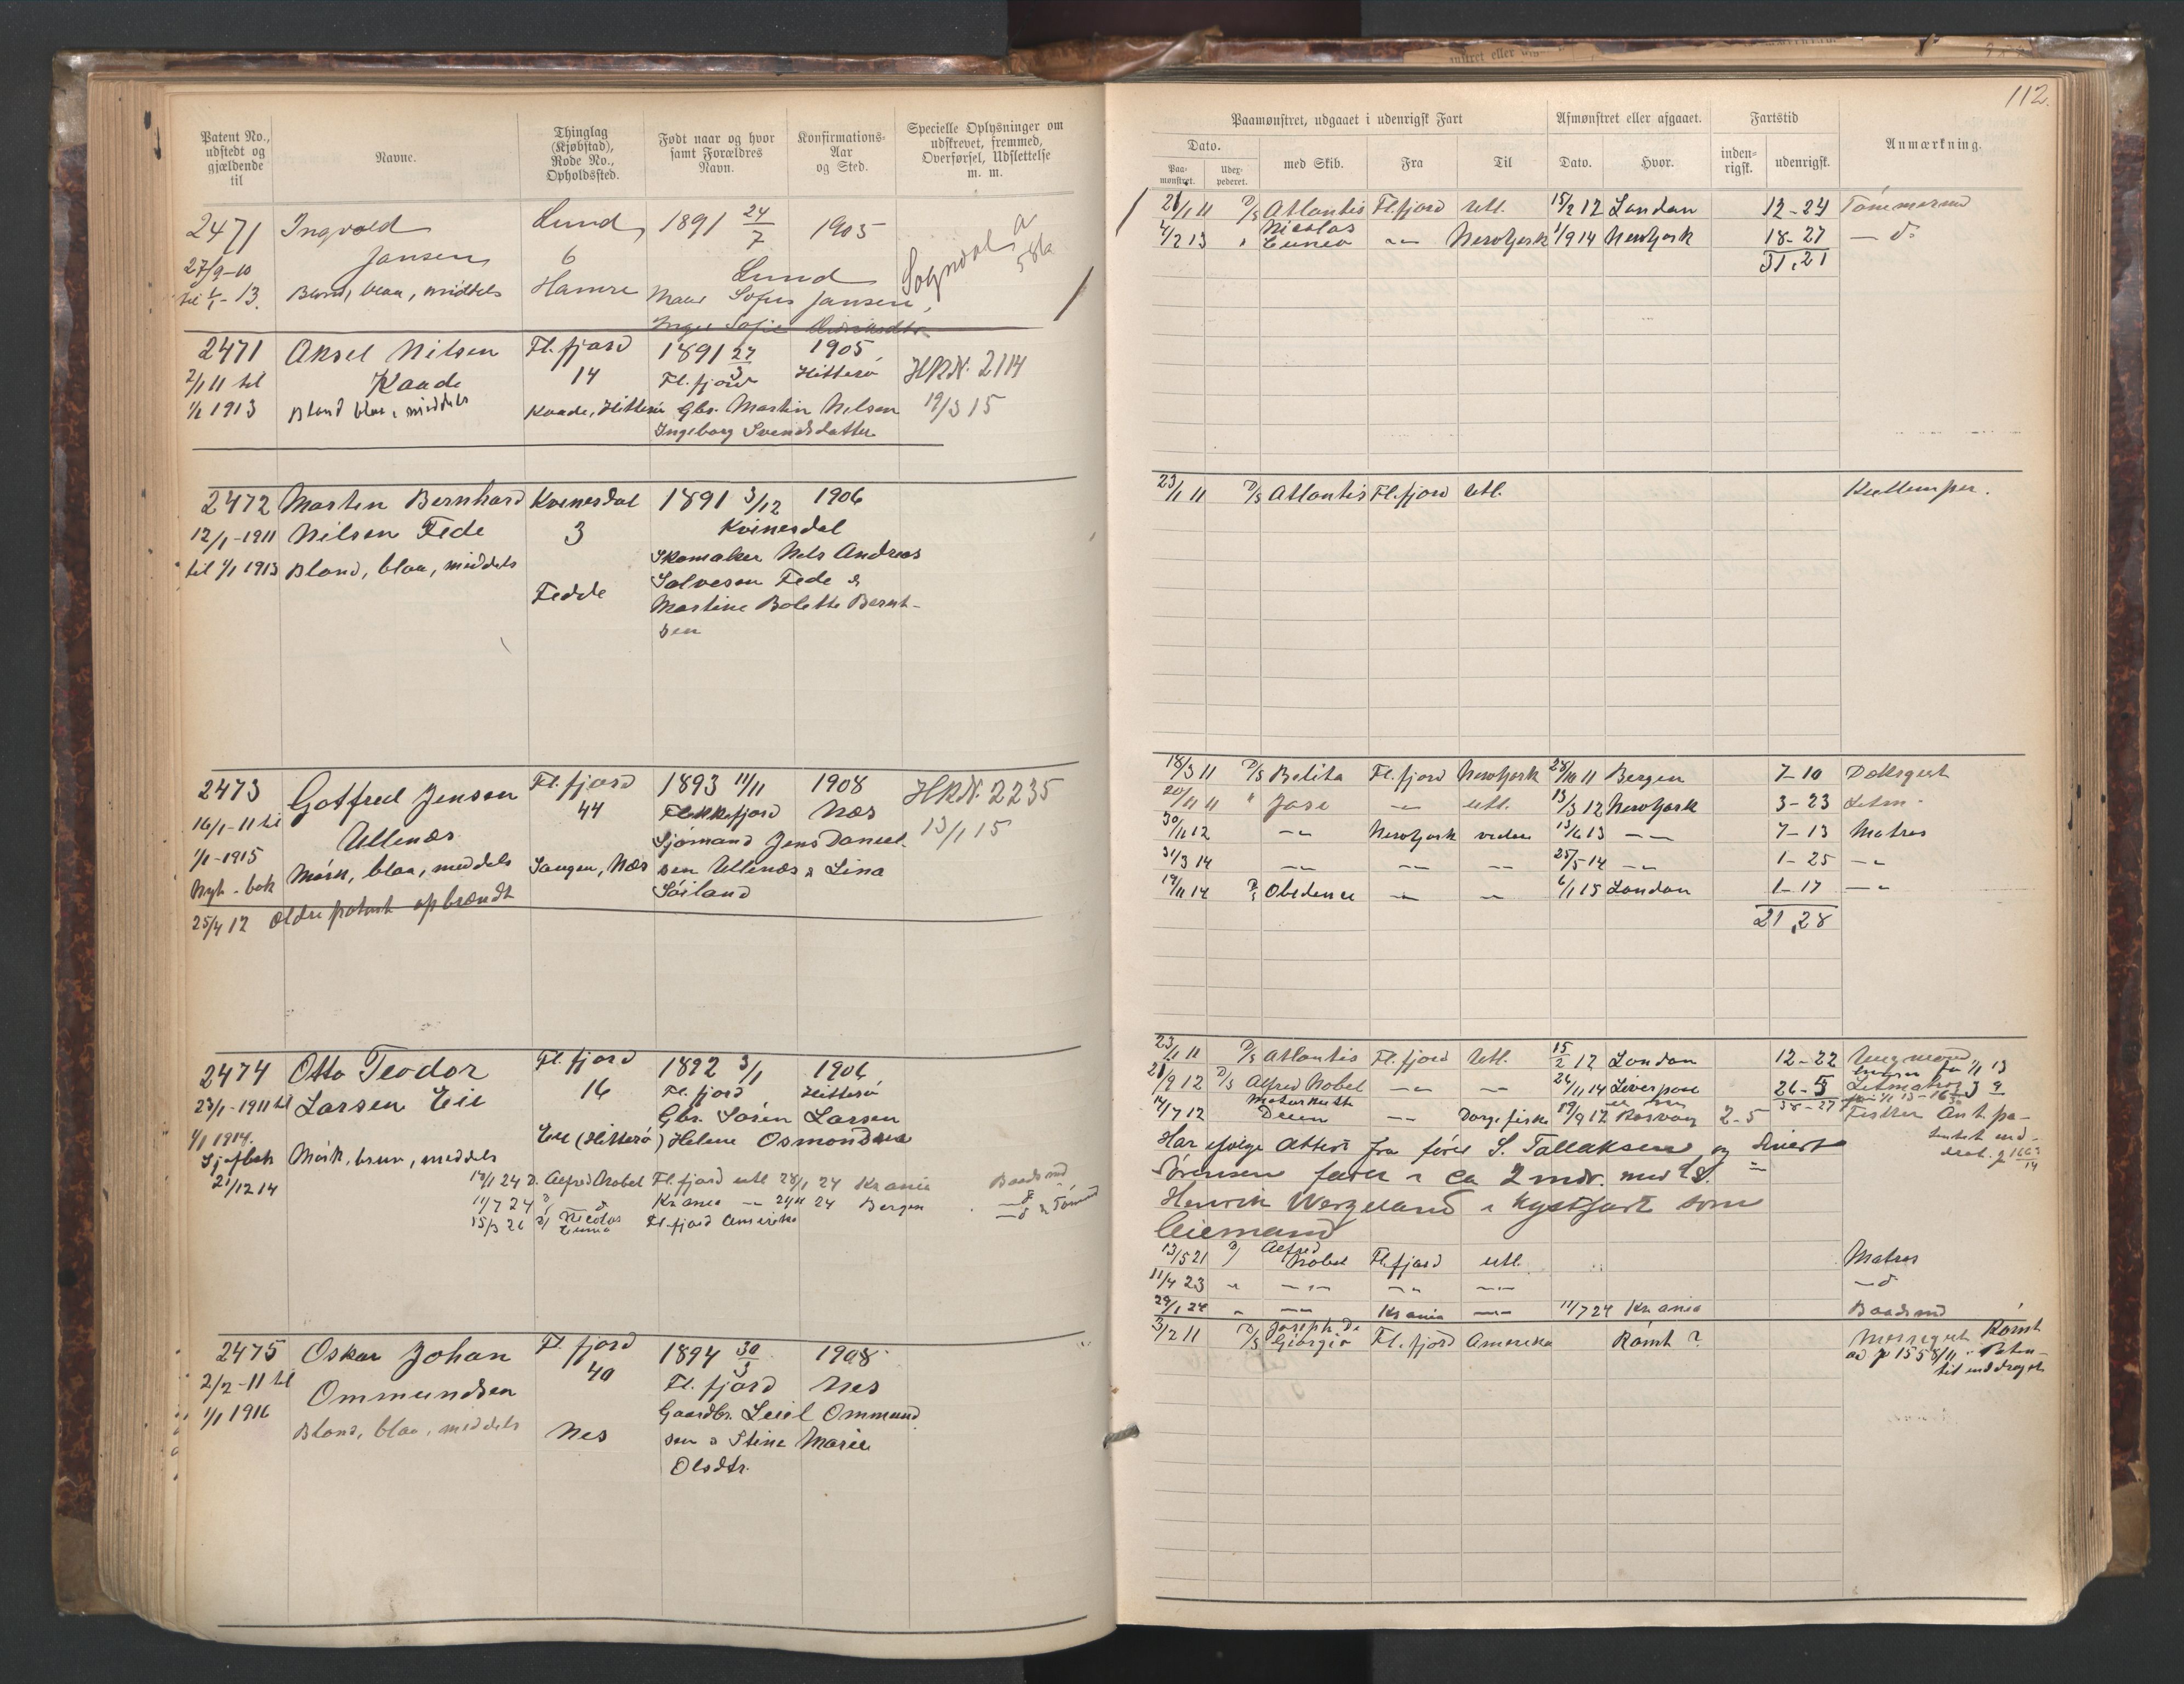 Patent No., udstedt og gjældende til
Navne.
Thinglag (Kjøbstad), Rode No., Opholdssted.
Født naar og hvor samt Forældres Navn.
Konfirmations-Aar og Sted.
Specielle Oplysninger om udskrevet, fremmed, Overførsel, Udslettelse m. m.
2471 Ingvald Lund 1891 24/7 1905
27/9-10 Jansen 6 Lund Sogndal a 58a
til 1/1-13. Blond, blaa, middels Hamre Sofus Jansen,
Inger Sofie
2471 Aksel Nilsen Fl.fjord 1891 27/3 1905
2/1 11 til Kaade 14 Fl. fjord Hitterø HRN. 2114
1/1 1913 Blond blaa, middels Kaade, Hitterø Gbr. Martin Nilsen 19/3 15
Ingeborg Svendsdatter
2472 Martin Bernhard Kvinesdal 1891 3/12 1906
12/1-1911 Nilsen Fede 3 Kvinesdal
til 1/1 1913 Blond, blaa, middels Skomaker Nels Andreas
Fedde Salvesen Fede &
Martine Bolette Bernt-
sen
2473 Gotfred Jensen Fl.fjord 1893 11/11 1908 HRN. 2235
16/1-11 til Ullenæs 44 Flekkefjord Næs 13/1 15
1/1-1915 Sjømand Jens Daniel-
Nyt-bok Mørk, blaa, meddels Saugen, Næs sen Ullenæs & Lina
25/4 12 ældre patent opbrændt Søiland
2474 Otto Teodor Fl. fjord 1892 3/1 1906
23/1-1911 til Larsen Eie 16 Fl. fjord Hitterø
1/1 1914. Gbr. Søren Larsen
Sjøfbok Mørk, brun, meddels Eie (Hitterø) Helene
21/12 14
14/1 24 D. Alfred Nobel Fl.fjord utl 28/1 24 Krania Baadsmd
11/7 24 Krania 24 Bergen
15/3 26 Nicolos Cuneo Fl.fjord Amerika
2475 Oskar Johan Fl. fjord 1894 30/3 1908
2/2-11 til Ommundsen 40 Fl. fjord Nes
1/1 1916 Gaardbr. Ommund
Blond, blaa, meddels Nes sen & Stine Marie
Olsdtr.
112.
Paamønstret, udgaaet i udenrigsk Fart
Afmønstret eller afgaaet.
Fartstid
Anmærkning.
Dato.
Paa-mønstret.
Udex-pederet.
med Skib.
Fra
Til
Dato.
Hvor.
inden-rigsk.
udenrigsk.
21/1 11 D/S Atlantis Fl.fjord Utl. 15/2 12 London 12-24 Tømmermd
4/2 13 " Nicolas Cuneo -"- NewYork 1/9 14 NewYork 18-27 -d-
31,21
23/1 11 D/S Atlantis Fl.fjord Utl. Kullemper.
18/3 11 D/S Belita Fl.fjord NewYork 28/10 11 Bergen 7-10 Dæksgut
20/11 11 " Jose -"- utl. 13/3 12 NewYork 3-23 Letm-
30/11 12 -"- NewYork videre 13/6 13 -"- 7-13 Matros
31/3 14 -"- -"- -"- 25/5 14 -"- 1-25 -"-
19/11 14 Obidense -"- -"- 6/1 15 London 1-17 -"-
21,28
23/1 11 D/S Atlantis Fl.fjord Utl. 15/2 12 London 12-22
28/9 12 D/S Alfred Nobel -"- -"- 24/11 14 Liverpool 26-5 Letmatros
38-27
14/7 12 Motorkutt. -"- Dorgefiske 17/9 12 2-5 Fisker Ant. pa-
Har ifølge Attest fra fører S. Tallaksen og
Sørensen faret i ca 2 mdr. med
Henrik Wergeland i Kystfart som
Leiemand
13/5 21 Alfred Nobel Fl.fjord utl. Matros
11/4 23 " -"- -"- -"- -d-
29/1 24 " -"- Krania -"- 11/7 24 Krania Baadsmd
3/2 11 D/S Joseph di Giorgio Fl. fjord Amerika Rømt ? Messegut Rømt
1558/11. Paten-
tet inddraget